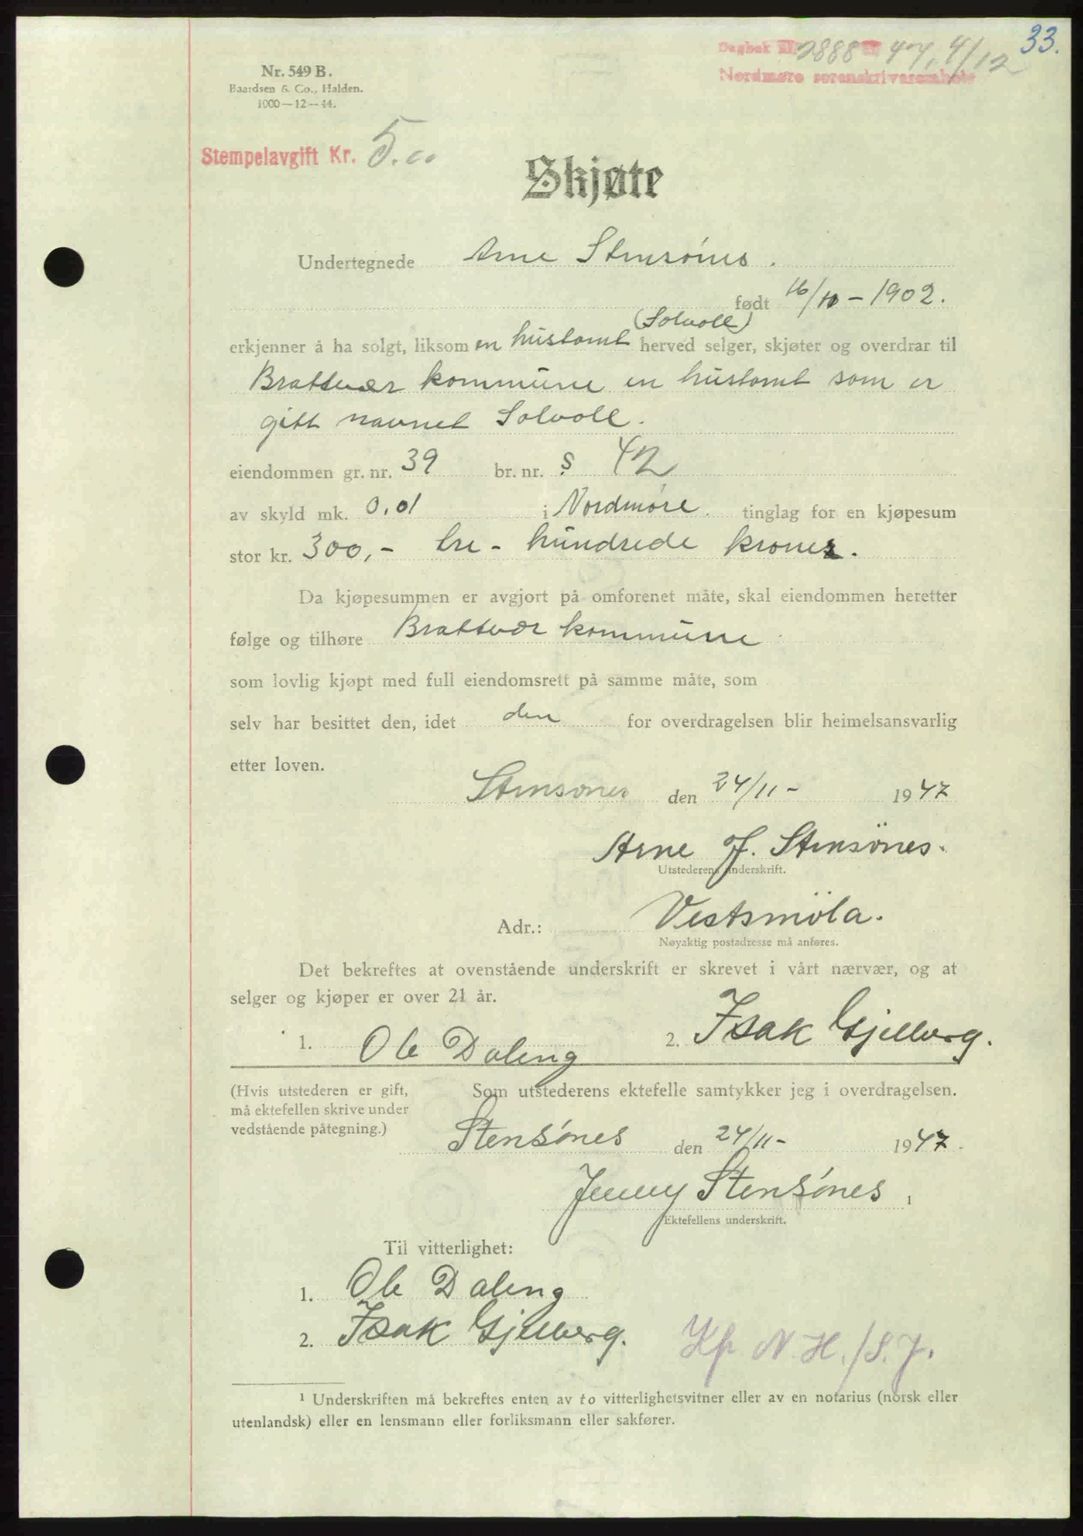 33.
Dagbok nr. 2888 - 47, 4/12
Nordmøre sorenskriverembete
Nr. 549 B.
Baardsen & Co., Halden.
1000—12—44.
Stempelavgift Kr. 5.00
Skjøte
Undertegnede Arne Stensönes.
født 16/10 - 1902.
(Solvoll)
erkjenner å ha solgt, liksom en hustomt herved selger, skjøter og overdrar til
Brattvær kommune en hustomt som er
gitt navnet Solvoll.
eiendommen gr. nr. 39 br. nr. 42
av skyld mk. 0.01 i Nordmøre tinglag for en kjøpesum
stor kr. 300,- tre - hundrede kroner.
Da kjøpesummen er avgjort på omforenet måte, skal eiendommen heretter
følge og tilhøre Brattvær kommune
som lovlig kjøpt med full eiendomsrett på samme måte, som
selv har besittet den, idet den for overdragelsen blir heimelsansvarlig
etter loven.
Stensönes den 24/11 - 1947
Arne J. Stensönes.
Utstederens underskrift.
Adr.: Vestsmöla.
Nøyaktig postadresse må anføres.
Det bekreftes at ovenstående underskrift er skrevet i vårt nærvær, og at
selger og kjøper er over 21 år.
1. Ole Daling 2. Isak Gjelberg.
(Hvis utstederen er gift, Som utstederens ektefelle samtykker jeg i overdragelsen.
må ektefellen skrive under
vedstående påtegning.)
Stensönes den 24/11 - 1947.
Jenny Stensönes 1
Ektefellens underskrift.
Til vitterlighet:
1. Ole Daling
2. Isak Gjelberg.
Kp N. H./S. J.
1 Underskriften må bekreftes enten av to vitterlighetsvitner eller av en notarius (norsk eller
utenlandsk) eller en lensmann eller forliksmann eller sakfører.